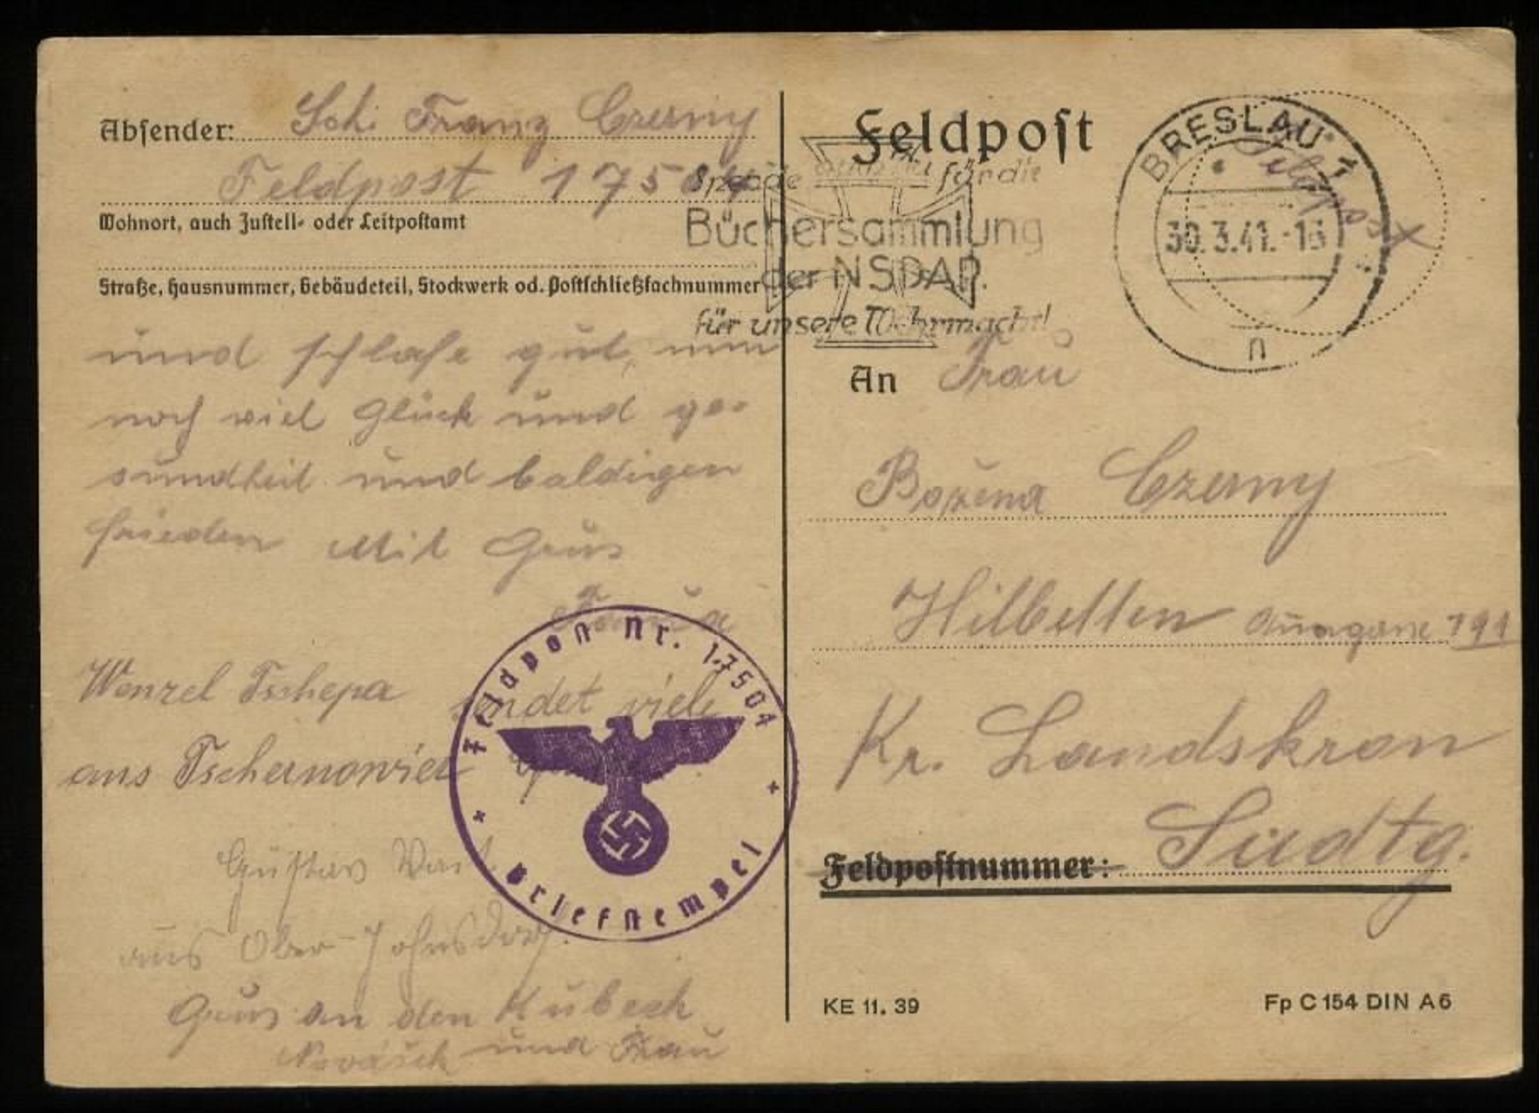 Absender: Sch. Franz Czerny
Feldpost 17504
Wohnort, auch Zustell- oder Leitpostamt
Straße, Hausnummer, Gebäudeteil, Stockwerk od. Postschließfachnummer
und schlafe gut, nun
noch viel Glück und ge-
sundheit und baldigen
frieden Mit Grus
Wenzel Tschepa sendet viele
aus Tschernowier
Gustav
aus Ober-Johnsdorf.
Grus an den Kubesch
und Frau
Feldpost Nr. 17504
Briefstempel
Feldpost
Spende für die
Büchersammlung
der NSDAP.
für unsere Wehrmacht!
BRESLAU 1
30.3.41.-16
n
Feldpost
An Frau
Božena Czerny
Hilbetten 191
Kr. Landskron
Feldpostnummer: Sudtg.
KE 11. 39
Fp C 154 DIN A6